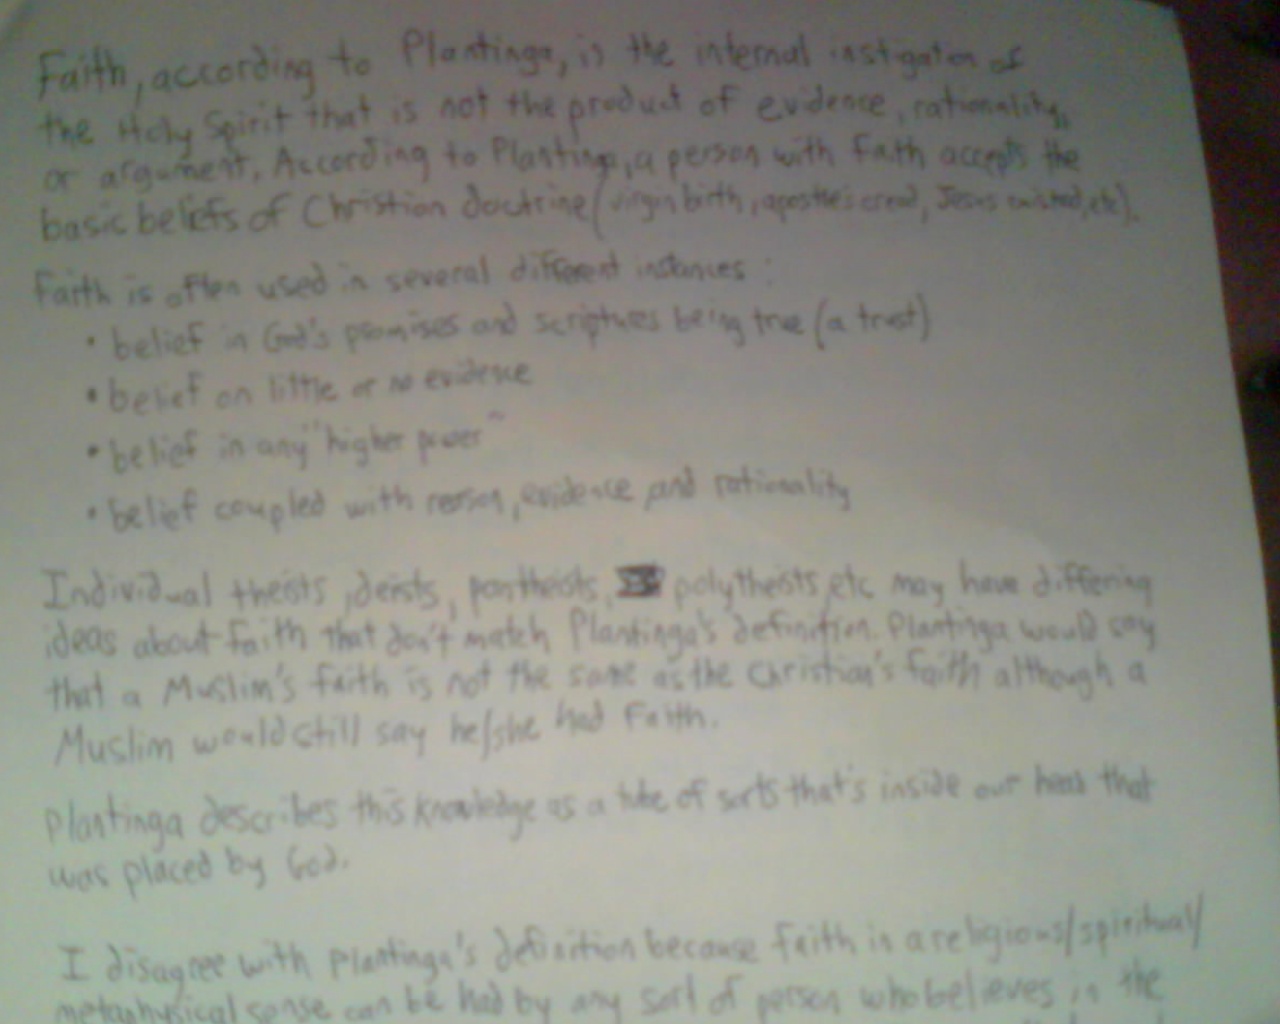 Faith, according to Plantinga, is the internal instigation of
the Holy Spirit that is not the product of evidence, rationality,
or argument. According to Plantinga, a person with faith accepts the
basic beliefs of Christian doctrine (virgin birth, apostle's creed, Jesus existed, etc).
Faith is often used in several different instances:
• belief in God's promises and scriptures being true (a trust)
• belief on little or no evidence
• belief in any "higher power"
• belief coupled with reason, evidence and rationality
Individual theists, deists, pantheists, polytheists, etc may have differing
ideas about faith that don't match Plantinga's definition. Plantinga would say
that a Muslim's faith is not the same as the Christian's faith although a
Muslim would still say he/she had faith.
Plantinga describes this knowledge as a tube of sorts that's inside our head that
was placed by God.
I disagree with Plantinga's definition because faith in a religious/spiritual/
metaphysical sense can be had by any sort of person who believes in the